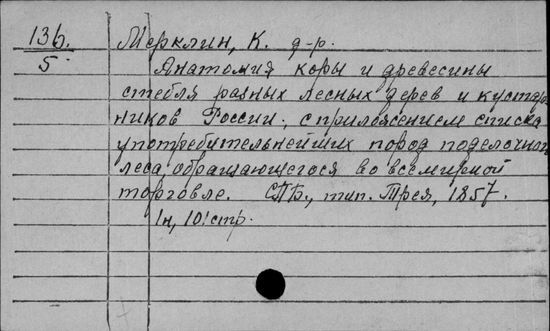 136. Мерклин, К. д-р.
5 Анатомия коры и древесины
стебля разных лесных дерев и кустар
ников России, с приложением списка
употребительнейших пород поделочного
леса, обращающегося во всемирной
торговле. СПБ., тип. Трея, 1857.
1н, 101стр.